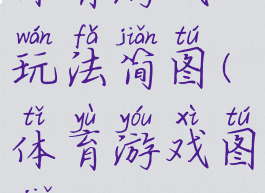 wán fǎ jiǎn tú
玩法简图(
tǐ yù yóu xì tú
体育游戏图